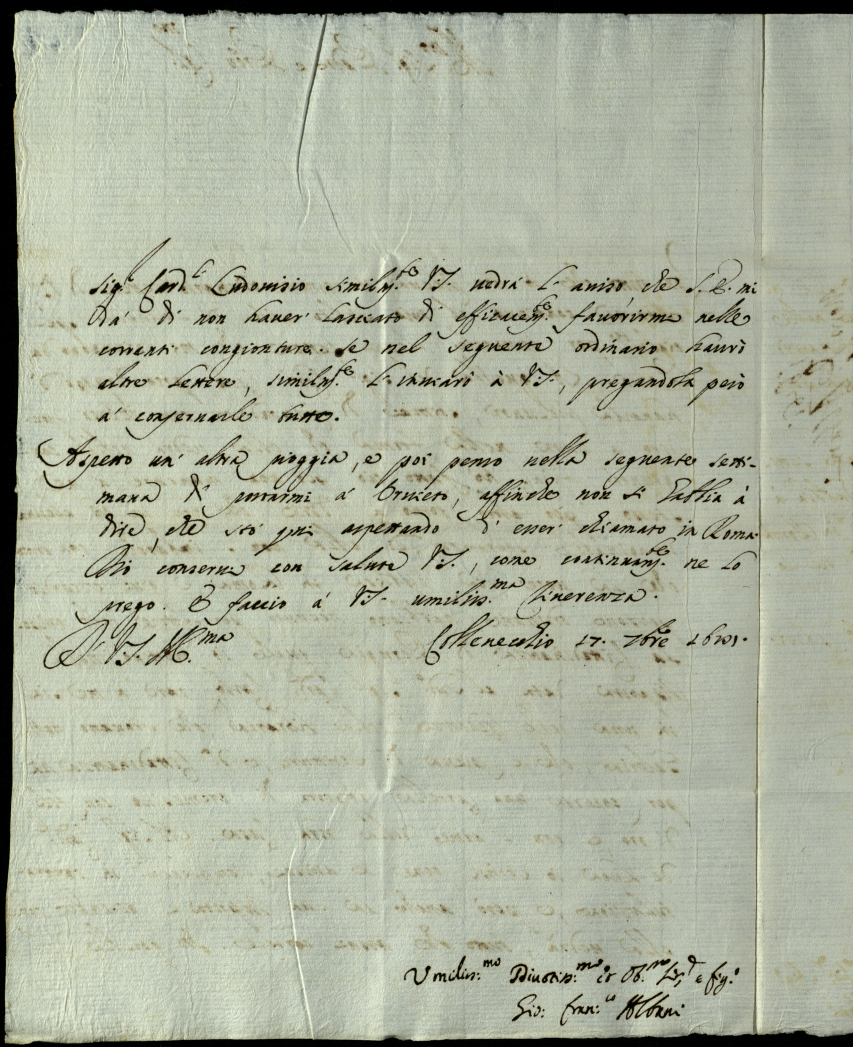 Sig.r Card.l Ludovisio similm.te V.S. vedrà l'aviso che S.E. mi
dà di non haver lasciato di efficacem.te favorirmi nelle
correnti congionture. Se nel seguente ordinario haurò
altre lettere, similm.te l'inviarò à V.S., pregandola però
à conservarle tutte.
Aspetto un' altra pioggia, e poi penso nella seguente setti-
mana di portarmi à Orvieto, affinche non si habbia à
dire, che stò qui aspettando d'esser chiamato in Roma.
Dio conservi con salute V.S., come continuam.te ne lo
prego. E faccio à V.S. umiliss.ma riverenza.
D. V.S. Ill.ma Collevecchio 17. 7bre
Umiliss.mo Divotiss.mo et Ob.mo e fig.o
Gio: Fran.co Albani